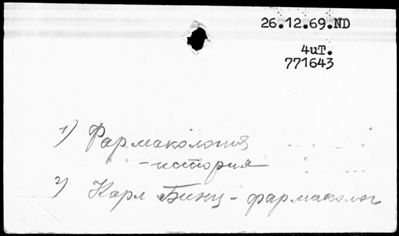 26.12.69.ND
4uT.
771643
1) Фармакология
-история
2) Карл Бинц - фармаколог